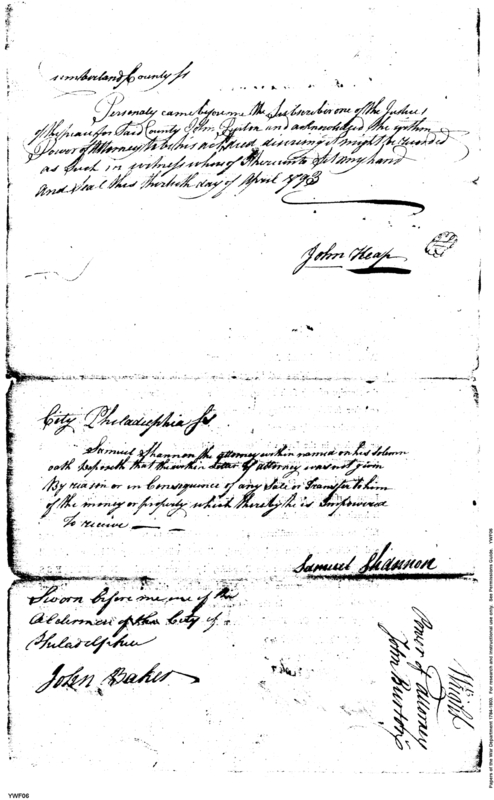 umberland County ss
Personaly came before me the Subscriber one of the Justices
of the peace for Said County John and acknowledged the within
Power of Attorney to be his act & deed desireing it might be recorded
as Such in witness whereof I hereunto Set my hand
and Seal this thirtieth day of April 1793
John Heap
City Philadelphia Ss
Samuel Shannon the attorney within named on his Solemn
oath deposeth that the within Letter of attorney was not given
By reason or in Consequence of any Sale or Transfer to him
of the money or property which thereby he is Impowered
to receive
Samuel Shannon
Sworn before me one of the
Aldermen of the City of
Philadelphia
John Baker
Wright
Power of Attorney
John
YWF06
Papers of the War Department 1784-1800. For research and instructional use only. See Permissions Guide. YWF06